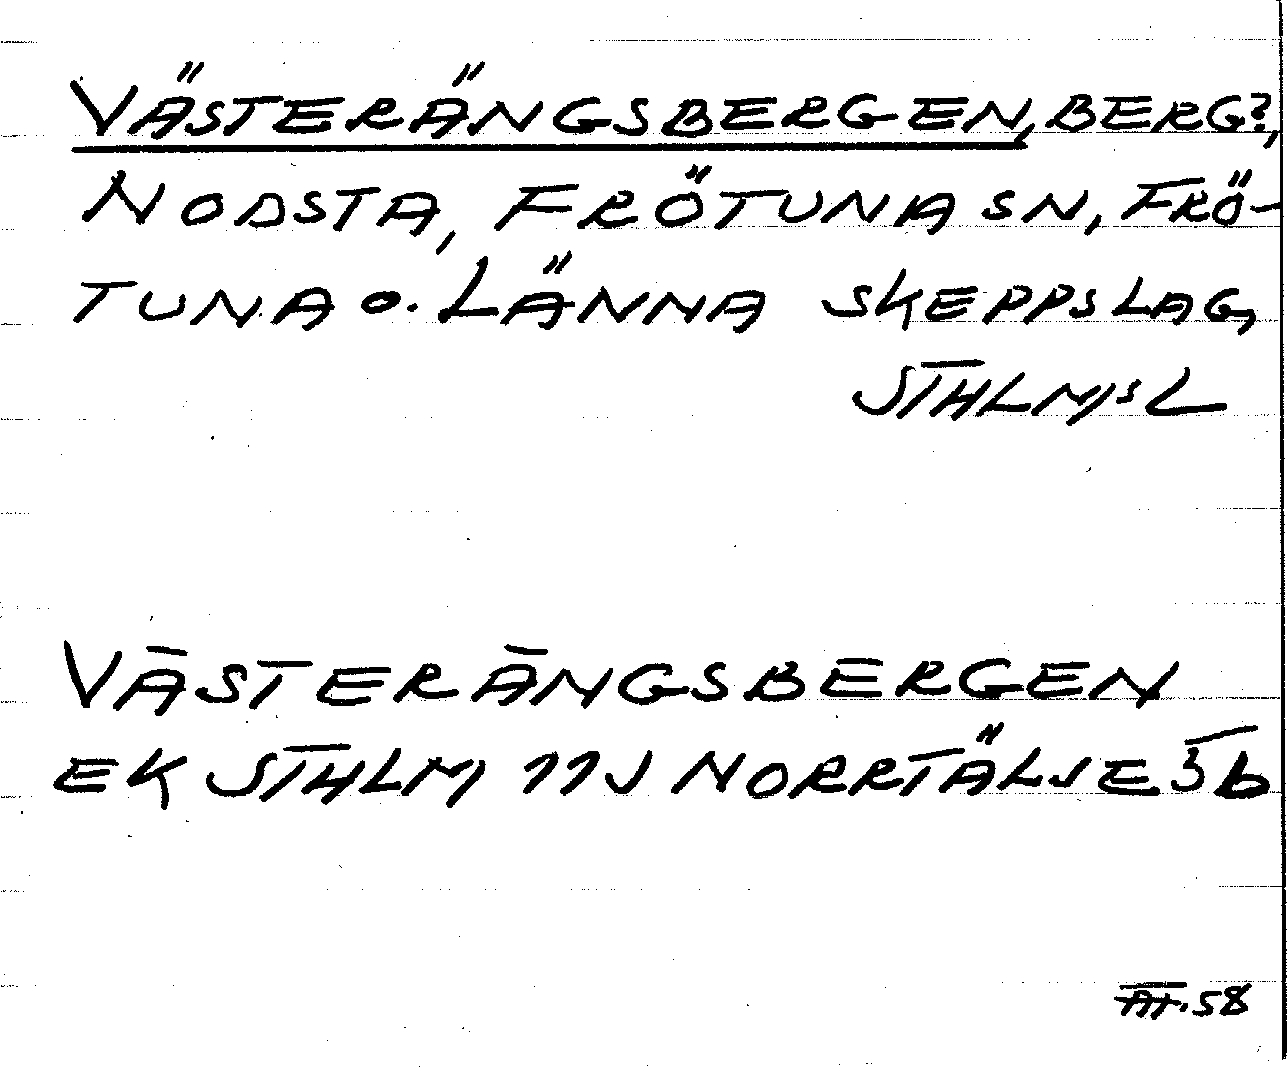 VÄSTERÄNGSBERGEN, BERG?,
NODSTA, FRÖTUNA SN, FRÖ-
TUNA O. LÄNNA SKEPPSLAG,
STHLMS L
VÄSTERÄNGSBERGEN
EK STHLM 11J NORRTÄLJE 5b
58